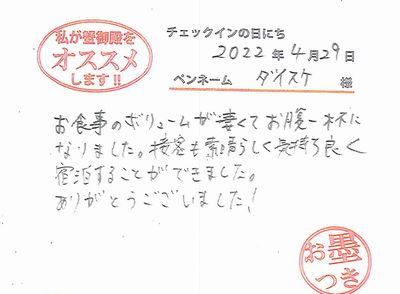 私が蟹御殿を
オススメ
します!!
チェックインの日にち
2022年4月29日
ペンネーム ダイスケ 様
お食事のボリュームが凄くてお腹一杯に
なりました。接客も素晴らしく気持ち良く
宿泊することができました。
ありがとうございました!
お墨
つき